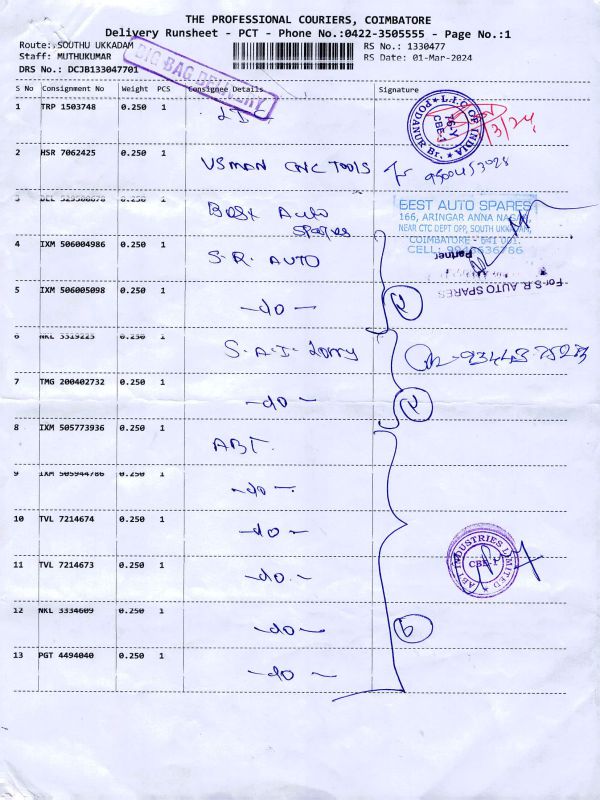 THE PROFESSIONAL COURIERS, COIMBATORE
Delivery Runsheet - PCT - Phone No.:0422-3505555 - Page No.:1
Route: SOUTHU UKKADAM
RS No.: 1330477
Staff: MUTHUKUMAR
RS Date: 01-Mar-2024
DRS No.: DCJB133047701
BIG BAG DELIVERY
S No Consignment No Weight PCS Consignee Details Signature
1 TRP 1503748 0.250 1
L.I.C OF INDIA
PODANUR Br.
CBE-
2 HSR 7062425 0.250 1 USMAN CNC TOOLS
3 0.250 1 Best Auto Spares
BEST AUTO SPARES
166, ARINGAR ANNA NAGAR,
NEAR CTC DEPT OPP, SOUTH UKKADAM,
COIMBATORE - 641 001.
Partner
For S.R. AUTO SPARES
4 IXM 506004986 0.250 1 S.R. AUTO
5 IXM 506005098 0.250 1 -do-
6 NKL 3319225 0.250 1 S.A.I. Lorry
7 TMG 200402732 0.250 1 -do-
8 IXM 505773936 0.250 1 ABT.
9 IXM 505944786 0.250 1 -do-
10 TVL 7214674 0.250 1 -do-
11 TVL 7214673 0.250 1 -do-
ABT INDUSTRIES LIMITED
CBE-1
12 NKL 3334609 0.250 1 -do-
6
13 PGT 4494040 0.250 1 -do-